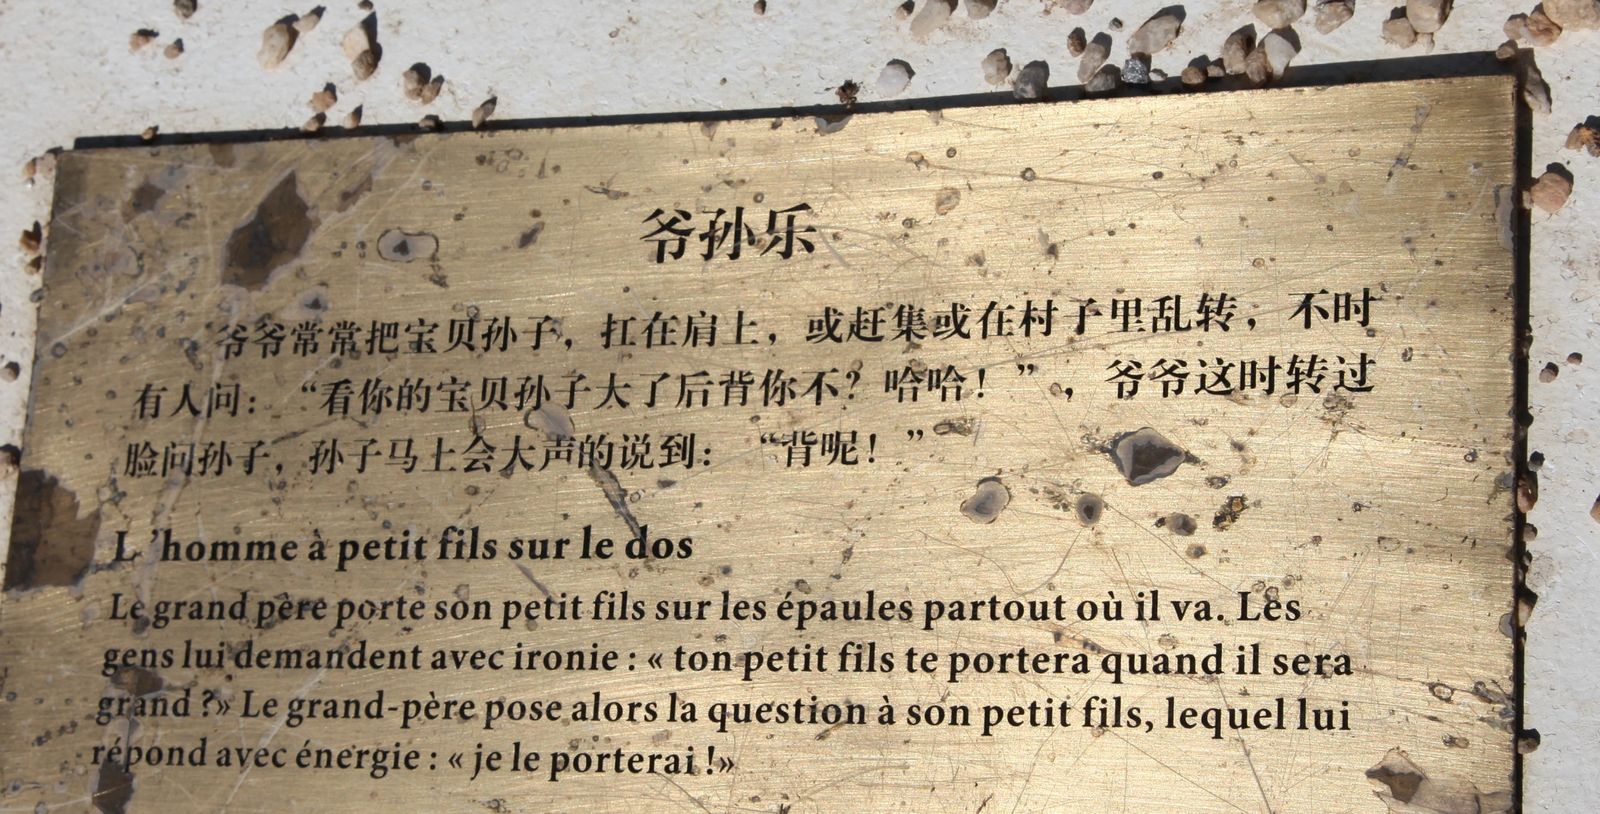 爷孙乐
爷爷常常把宝贝孙子，扛在肩上，或赶集或在村子里乱转，不时
有人问：“看你的宝贝孙子大了后背你不？哈哈！”，爷爷这时转过
脸问孙子，孙子马上会大声的说到：“背呢！”
L’homme à petit fils sur le dos
Le grand père porte son petit fils sur les épaules partout où il va. Les
gens lui demandent avec ironie : « ton petit fils te portera quand il sera
grand ?» Le grand-père pose alors la question à son petit fils, lequel lui
répond avec énergie : « je le porterai !»